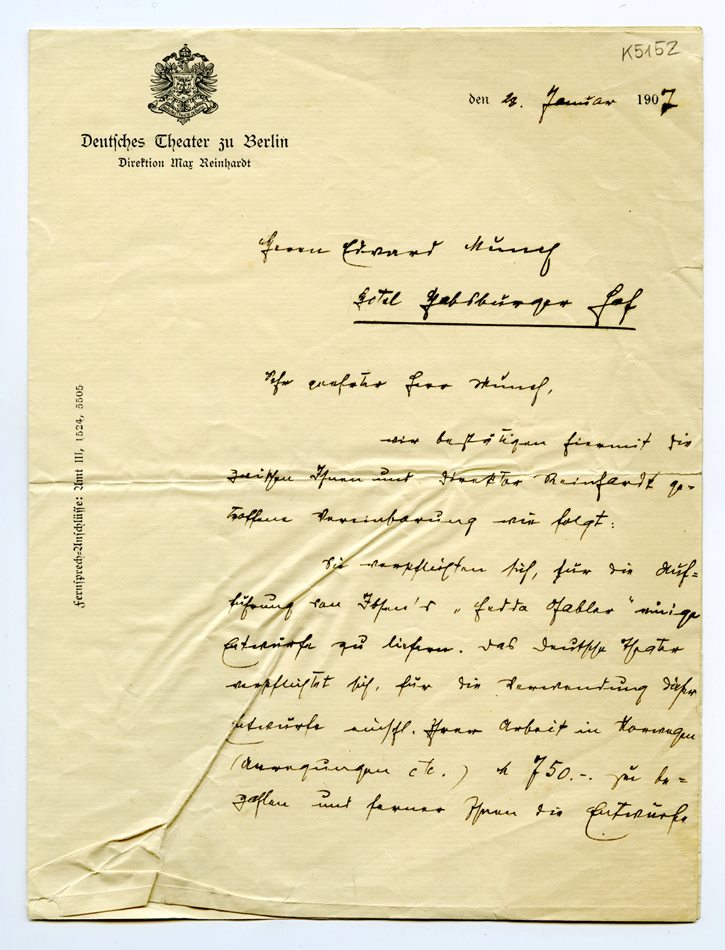 K5152
Deutsches Theater zu Berlin
Direktion Max Reinhardt
den Januar 1907
Herrn Edvard Munch
Hotel Habsburger Hof
Sehr geehrter Herr Munch,
wir bestätigen hiermit die
zwischen Ihnen und Direktor Reinhardt ge-
troffene Vereinbarung wie folgt:
Sie verpflichten sich, für die Auf-
führung von Ibsen's „Hedda Gabler" einige
Entwürfe zu liefern. Das Deutsche Theater
verpflichtet sich, für die Verwendung dieser
Entwürfe einschl. Ihrer Arbeit in Norwegen
(Anregungen etc.) M 750.- zu be-
zahlen und ferner Ihnen die Entwürfe
Fernsprech-Anschlüsse: Amt III, 1524, 5505